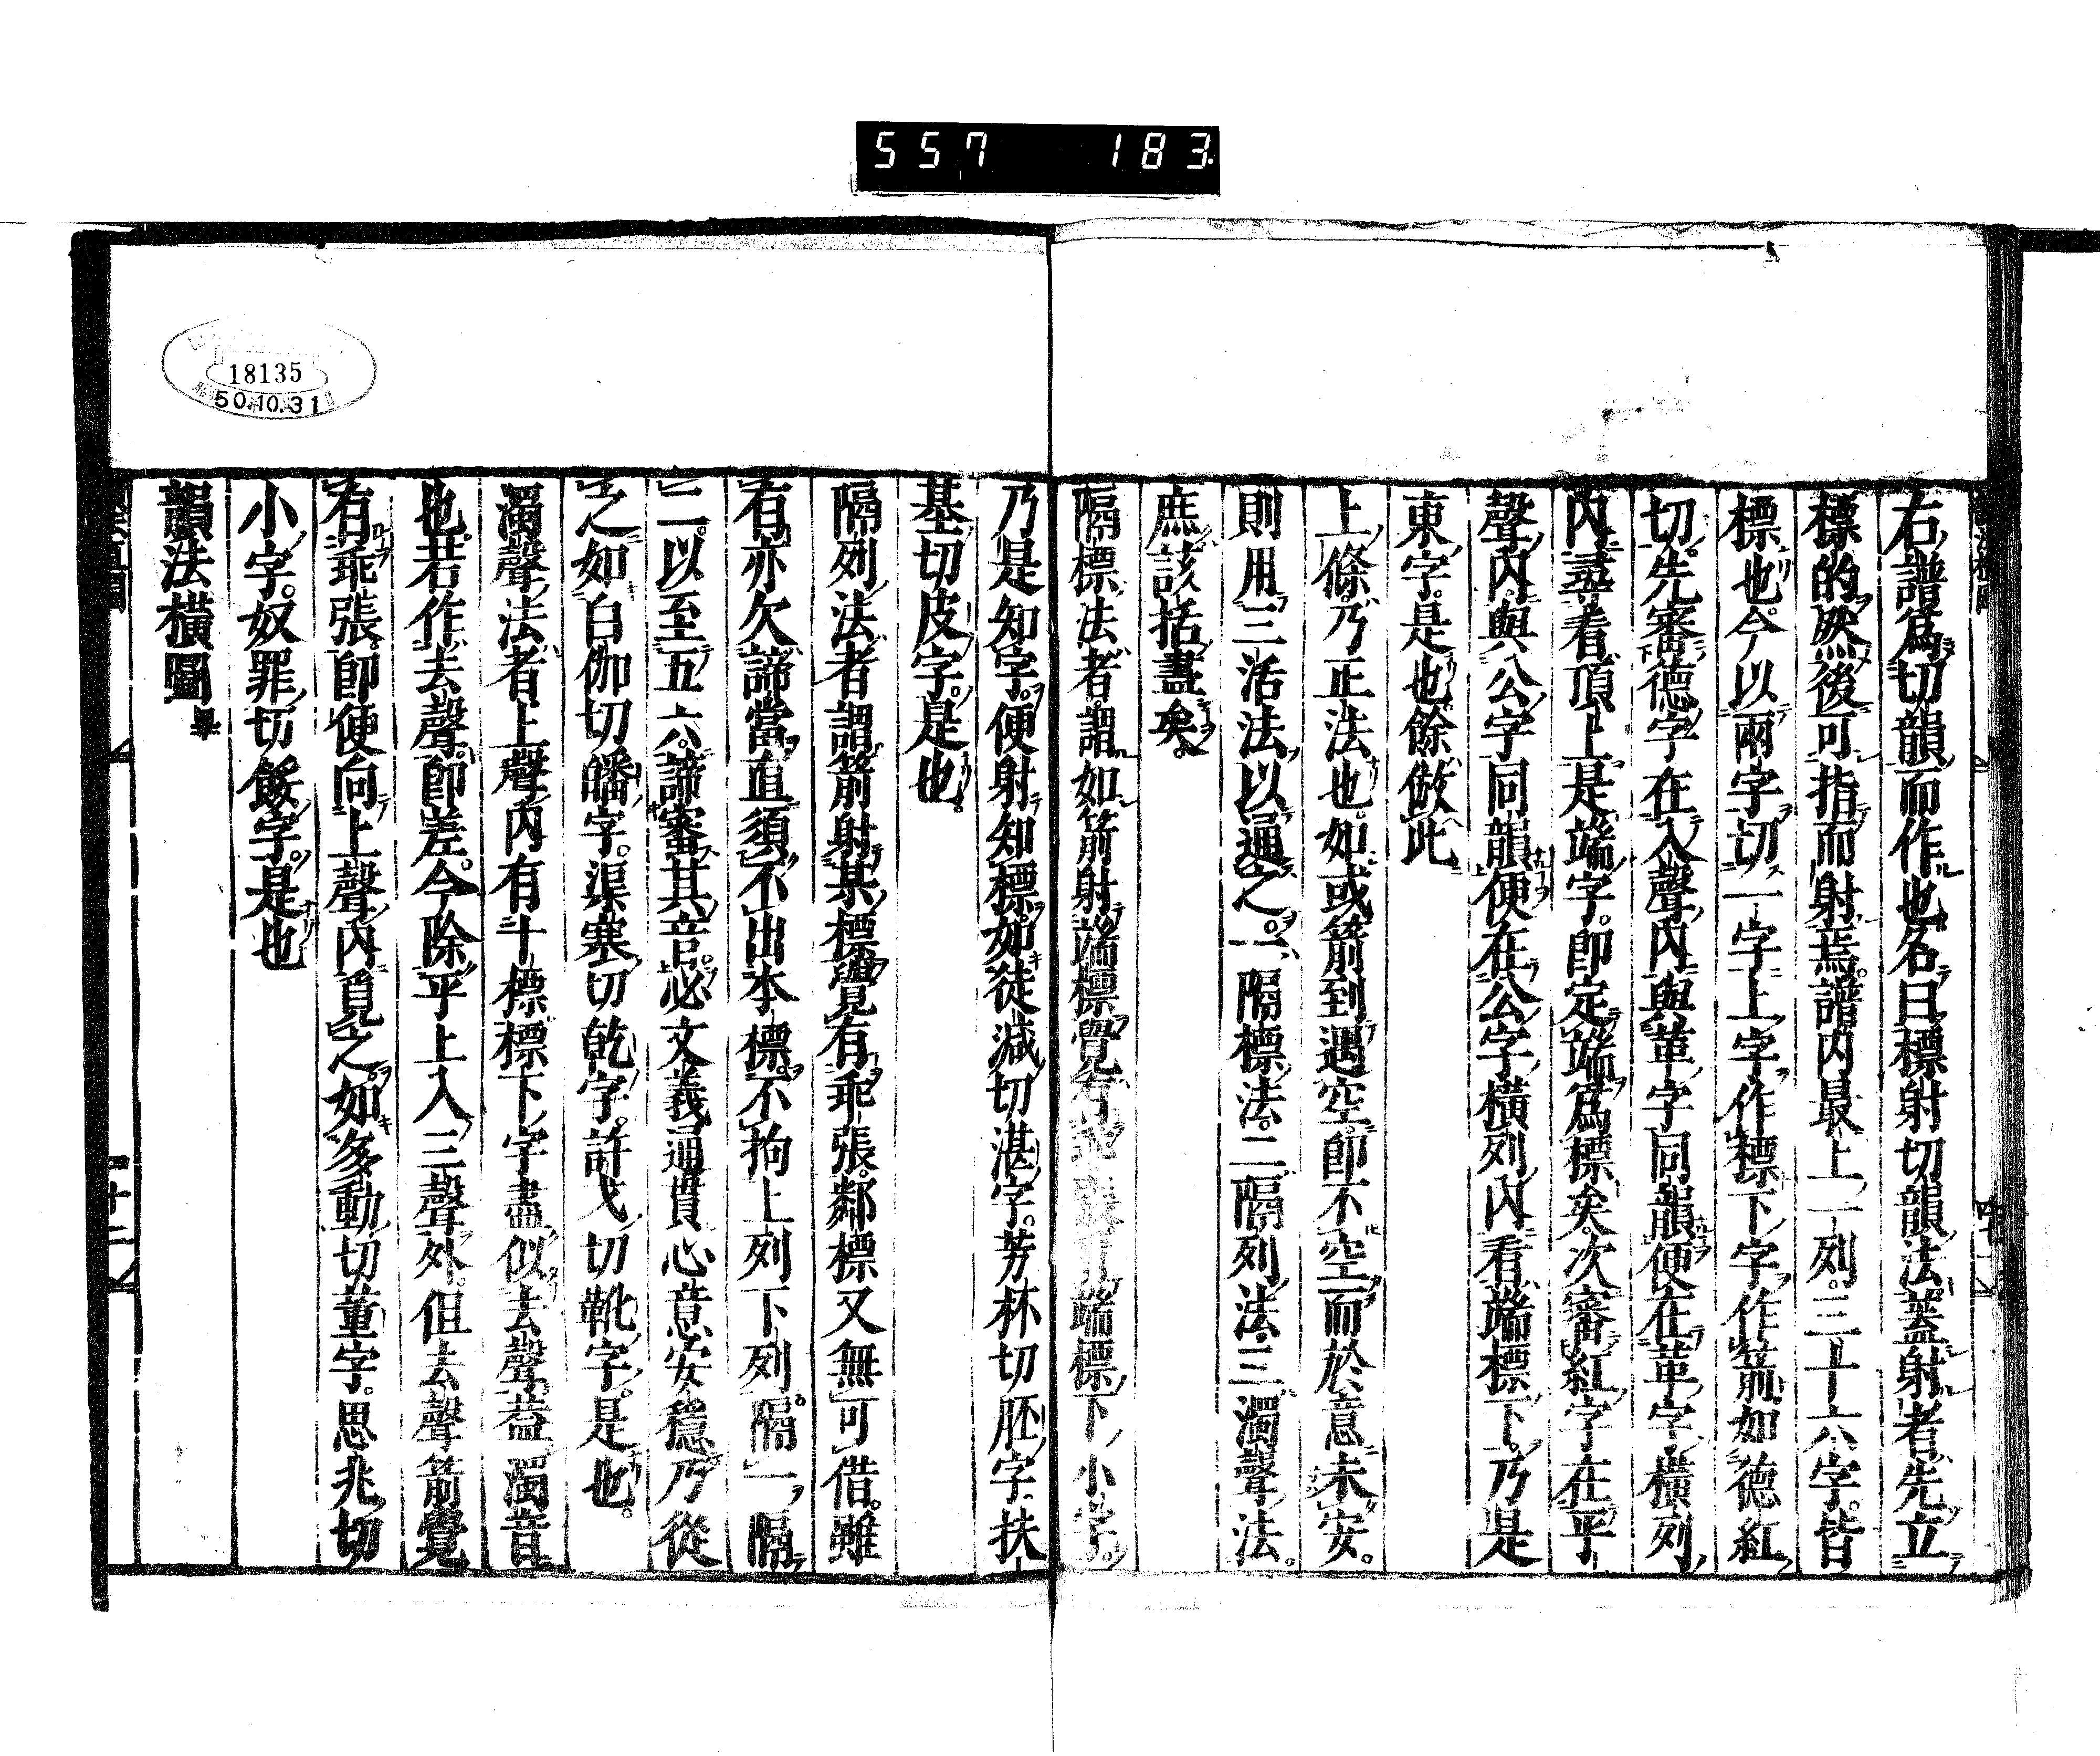 557 183
右譜爲切韻而作也名曰標射切韻法蓋射者先立
標的然後可指而射焉譜內最上一列三十六字皆
標也今以兩字切一字上字作標下字作箭如德紅
切先審德字在入聲內與革字同韻便在革字橫列
內尋看頂上是端字即定端爲標矣次審紅字在平
聲內與公字同韻便在公字橫列內看端標下乃是
東字是也餘倣此
上條乃正法也如或箭到遇空即不空而於意未安
則用三活法以通之一隔標法二隔列法三濁聲法
庶該括盡矣
隔標法者謂如箭射端標覺有端標下小字
乃是知字便射知標如徒減切湛字芳杯切胚字扶
基切皮字是也
隔列法者謂箭射某標覺有乖張鄰標又無可借雖
有亦欠諦當直須不出本標不拘上列下列隔一隔
二以至五六諦審其音必文義通貫心意安穩乃從
之如白伽切皤字渠寒切乾字許戈切靴字是也
濁聲法者上聲內有十標標下字盡似去聲蓋濁音
也若作去聲即差今除平上入三聲外但去聲箭覺
有乖張即便向上聲內覓之如多動切董字思兆切
小字奴罪切餒字是也
韻法橫圖畢
18135
50.10.31
十二